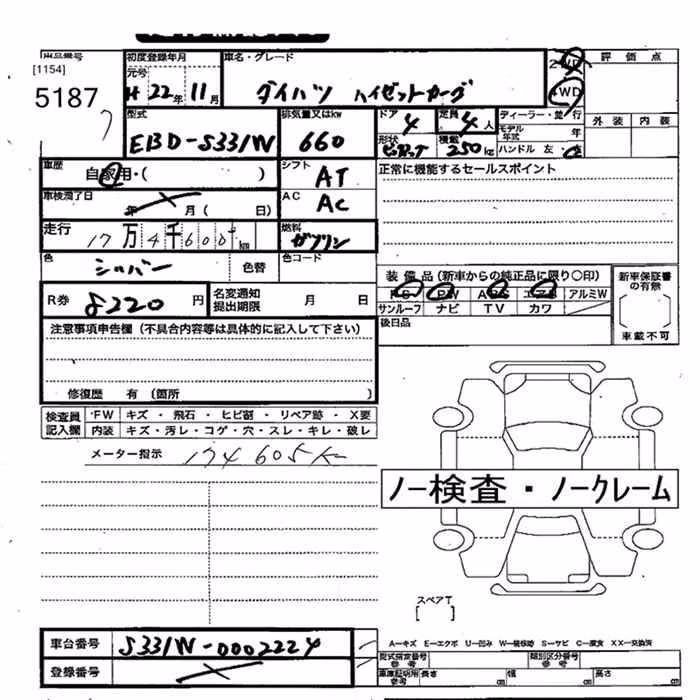 [1154]
5187
初度登録年月
元号
H 22年 11月
車名・グレード
ダイハツ ハイゼットカーゴ
2WD
4WD
評価点
外装 内装
型式
EBD-S331W
排気量又はkw
660
ドア
4
形状
定員
4人
積載
250kg
ディーラー・並行
モデル年式 年
ハンドル 左・右
車歴
自家用・( )
シフト
AT
正常に機能するセールスポイント
車検満了日
年 月( 日)
AC
AC
走行
17万4千600km
燃料
ガソリン
色
シルバー
色替
色コード
装備品(新車からの純正品に限り○印)
PS PW ABS エアB アルミW
サンルーフ ナビ TV カワ
新車保証書の有無
車載不可
R券
8220円
名変通知提出期限
月 日
後日品
注意事項申告欄(不具合内容等は具体的に記入して下さい)
修復歴 有(箇所 )
検査員記入欄
・FW キズ・飛石・ヒビ割・リペア跡・X要
内装 キズ・汚レ・コゲ・穴・スレ・キレ・破レ
メーター指示 174605K
ノー検査・ノークレーム
スペアT
[ ]
車台番号
S331W-0002224
登録番号
A−キズ E−エクボ U−凹み W−補修跡 S−サビ C−腐食 XX−交換済
型式指定番号 参考
類別区分番号 参考
車庫証明用 参考
長さ cm 幅 cm 高さ cm